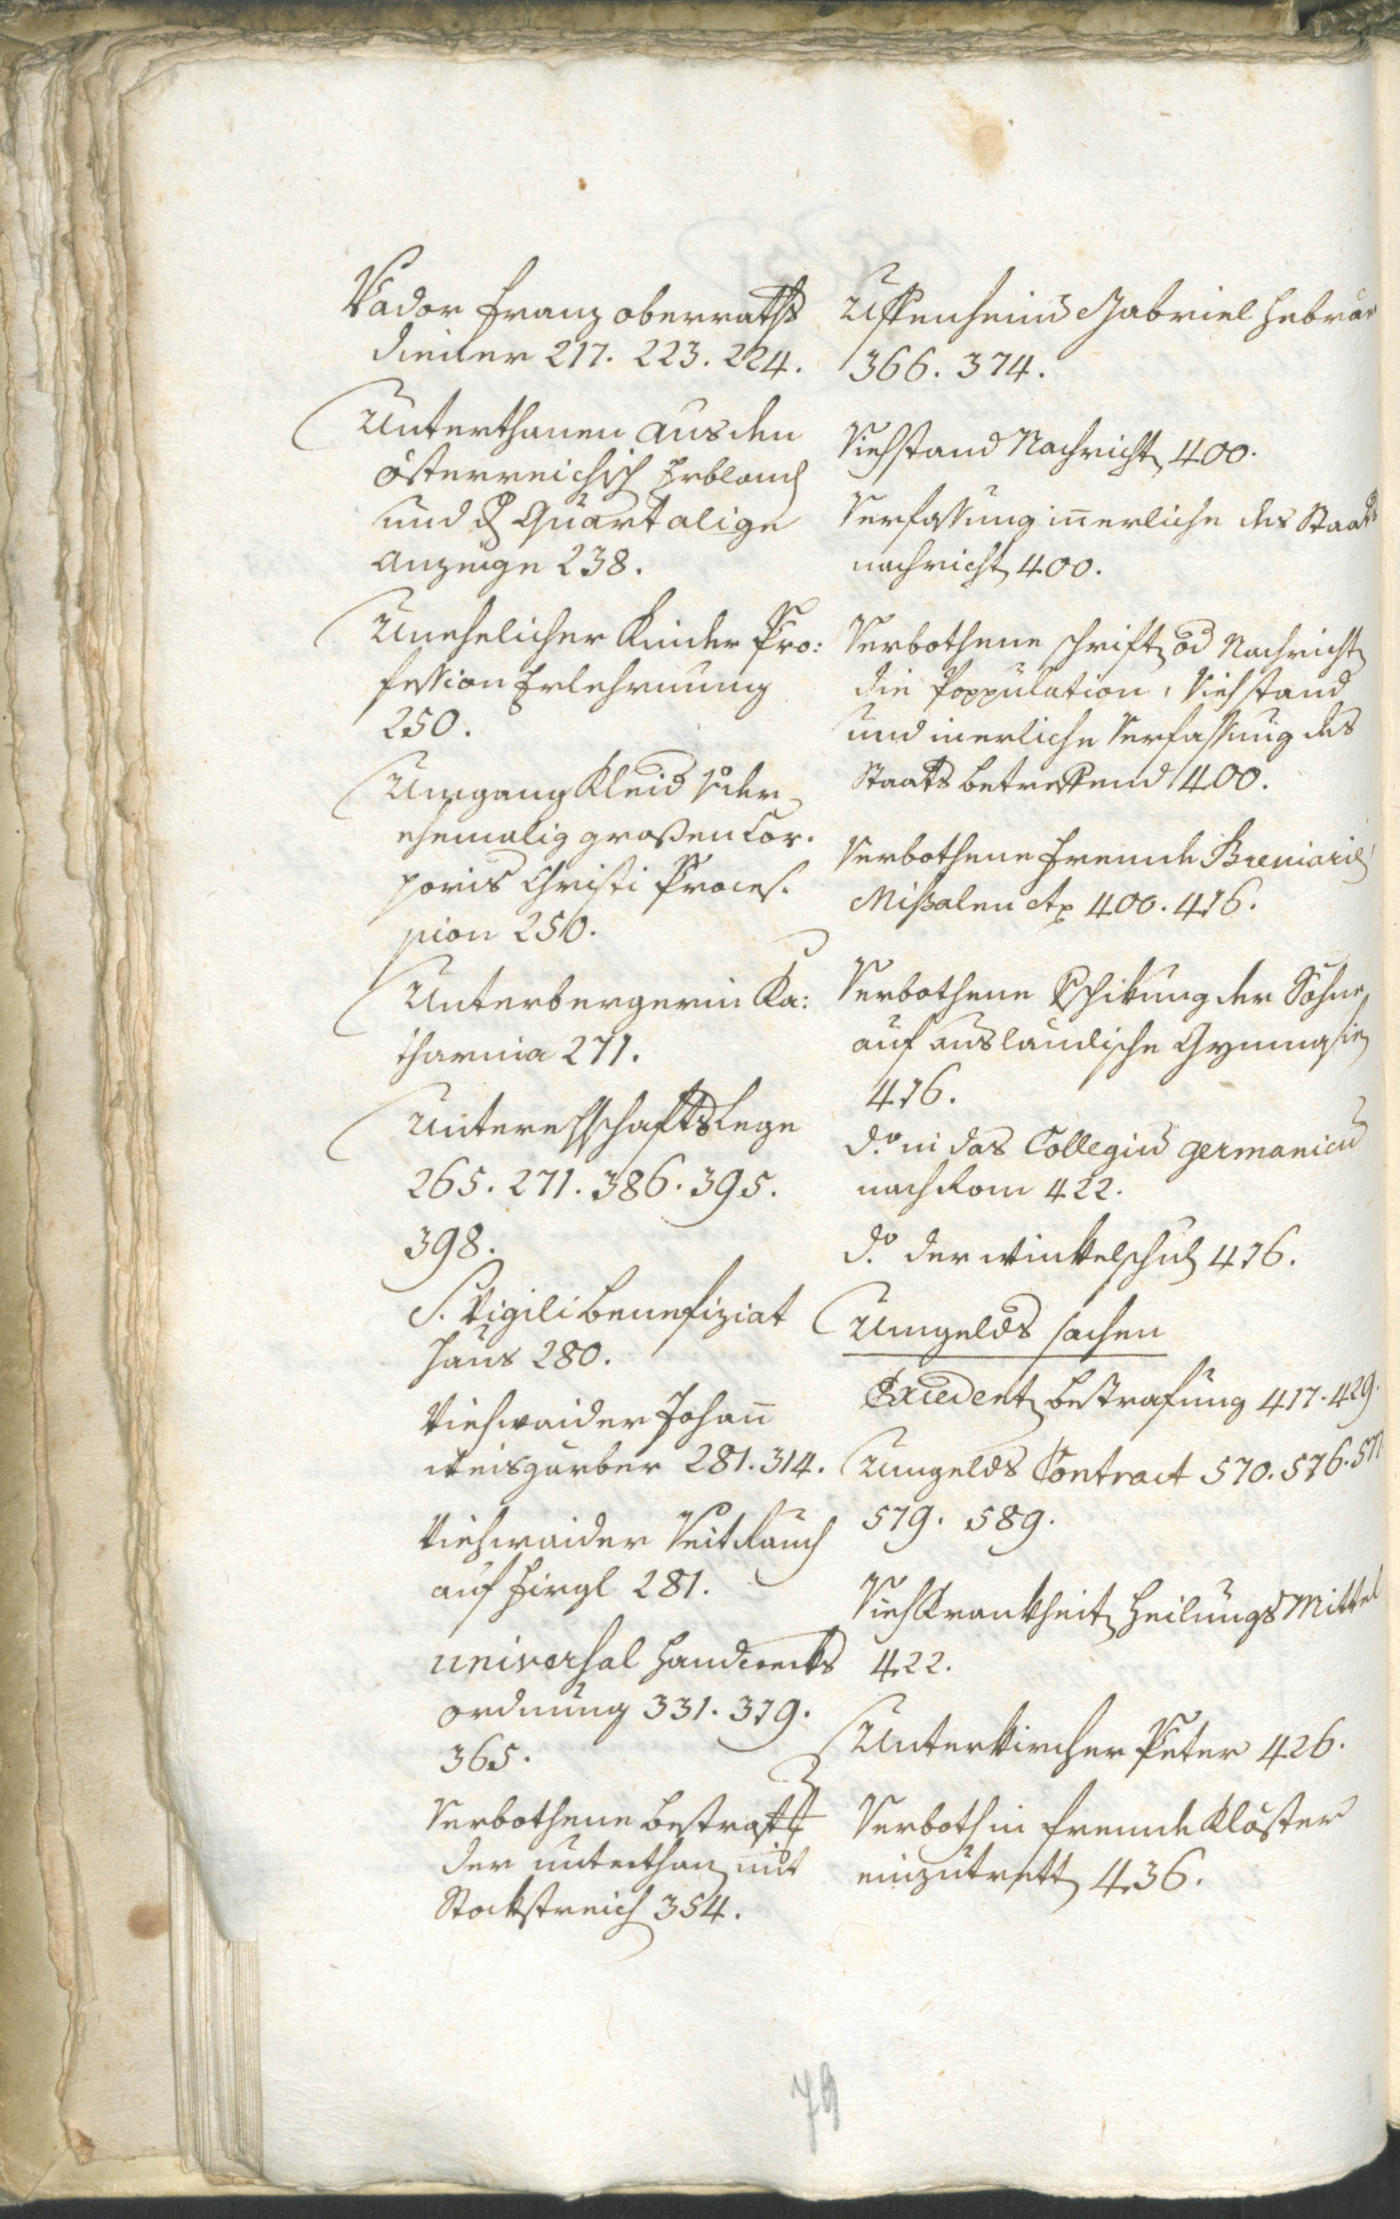 Vador Franz oberraths
diener 217. 223. 224.
Unterthanen aus den
österreichisch Erbland
und d Quartalige
anzeige 238.
Unehelicher Kinder Pro:
fession Erlehrnung
250.
Umgang Kleid V der
ehemalig großen Cor.
poris Christi Proces.
sion 250.
Unterbergerin Ka:
tharina 271.
Unterschafts Lege
265. 271. 386. 395.
398.
S. Vigili Benefiziat
Haus 280.
Viehwaider Johann
Weisgärber 281. 314.
Viehwaider Veit Rauch
auf Hirgl 281.
universal Handwerks
ordnung 331. 379.
365.
Verbothene Bestraff
der unterthan mit
Stockstreich 354.
Uffenheim Gabriel Hebräer
366. 374.
Viehstand Nachricht 400.
Verfassung innerliche des Staats
nachricht 400.
Verbothene schrift od Nachricht
die Poppulation, Viehstand
und inerliche Verfassung des
Staats betreffend 400.
Verbothene Fremde Breviarie
Missalen etc 400. 416.
Verbothene Schikung der Söhne
auf ausländische Gymnasien
416.
do in das Collegiu germanicu
nach Rom 422.
do der Winkelschul 416.
Umgelds sachen
Excedent bestrafung 417. 429.
Umgelds Contract 570. 576. 577
579. 589.
Viehkrankheit Heilungs Mittel
422.
Unterkircher Peter 426.
Verboth in fremde Klöster
einzutrett 436.
79